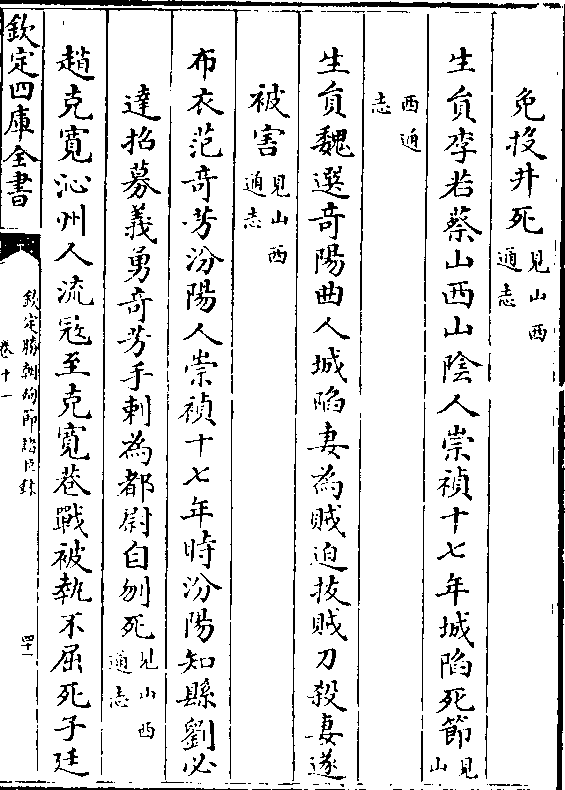 免投井死見山西通志
生員李若蔡山西山陰人崇禎十七年城陷死節見山
西通志
生員魏選奇陽曲人城陷妻為賊迫拔賊刀殺妻遂
被害見山西通志
布衣范奇芳汾陽人崇禎十七年時汾陽知縣劉必
達招募義勇奇芳手刺為都尉自刎死見山西通志
趙克寬沁州人流寇至克寬巷戰被執不屈死子廷
欽定四庫全書
欽定勝朝殉節諸臣錄
卷十一
四十一